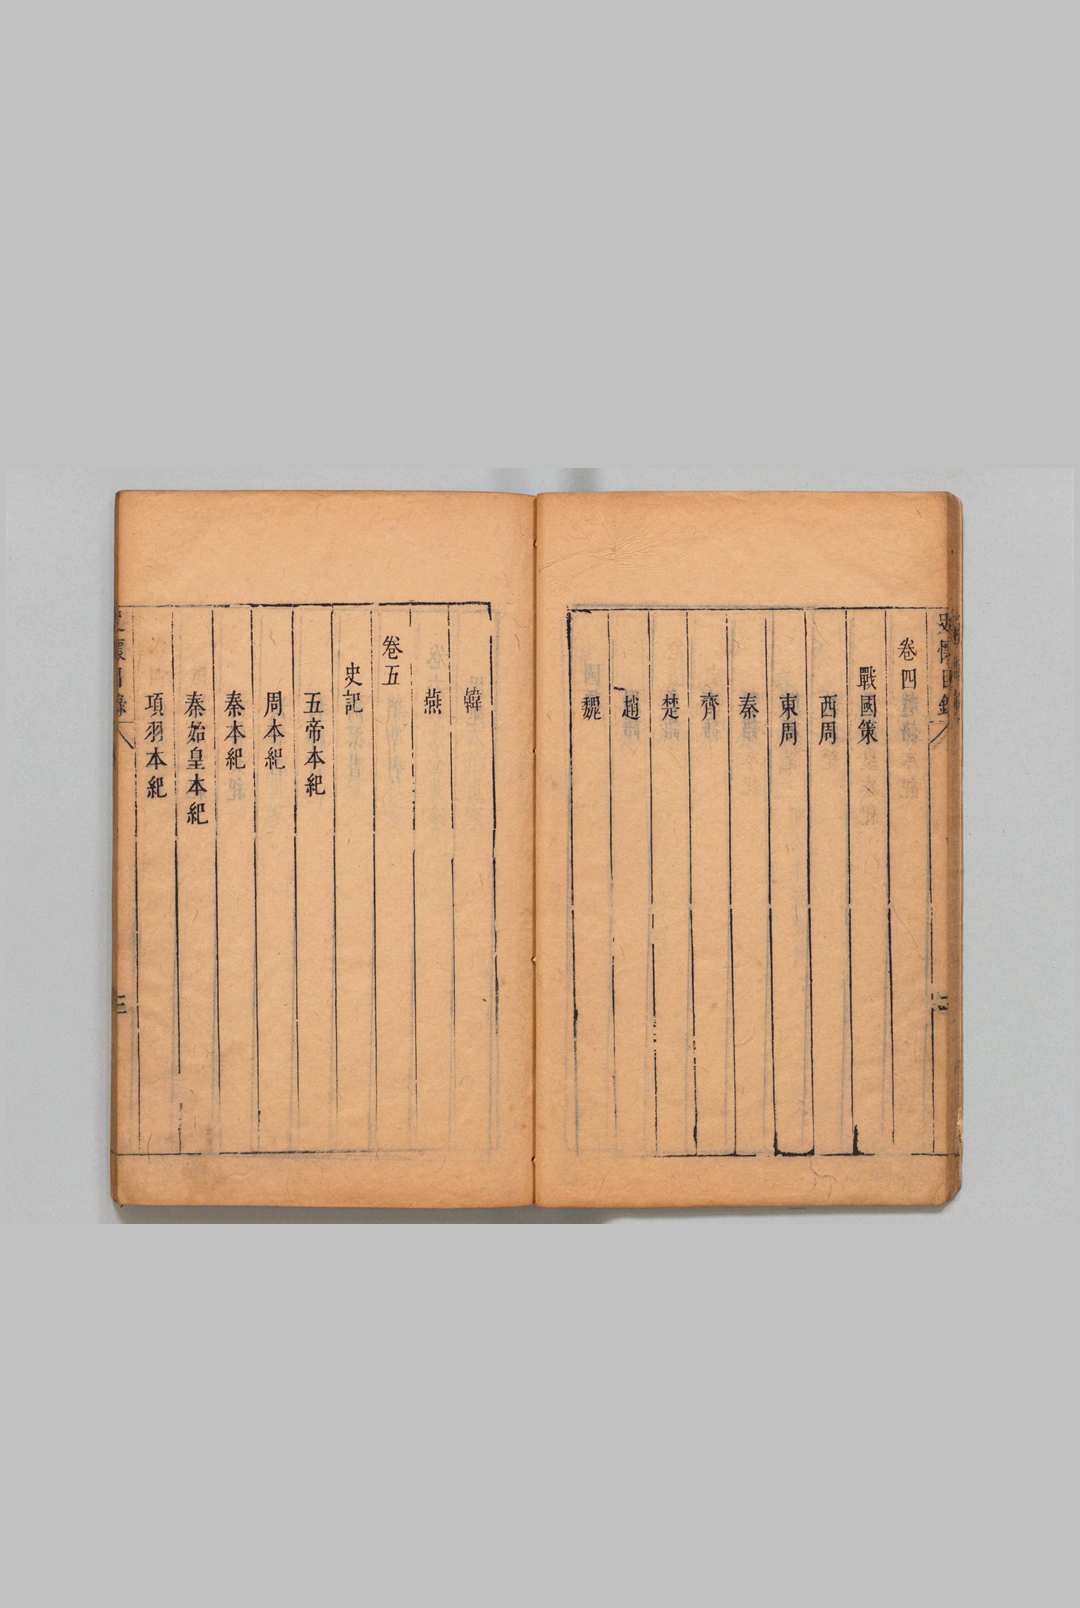 史懷目錄
卷四
戰國策
西周
東周
秦
齊
楚
趙
魏
韓
燕
卷五
史記
五帝本紀
周本紀
秦本紀
秦始皇本紀
項羽本紀
史懷目錄